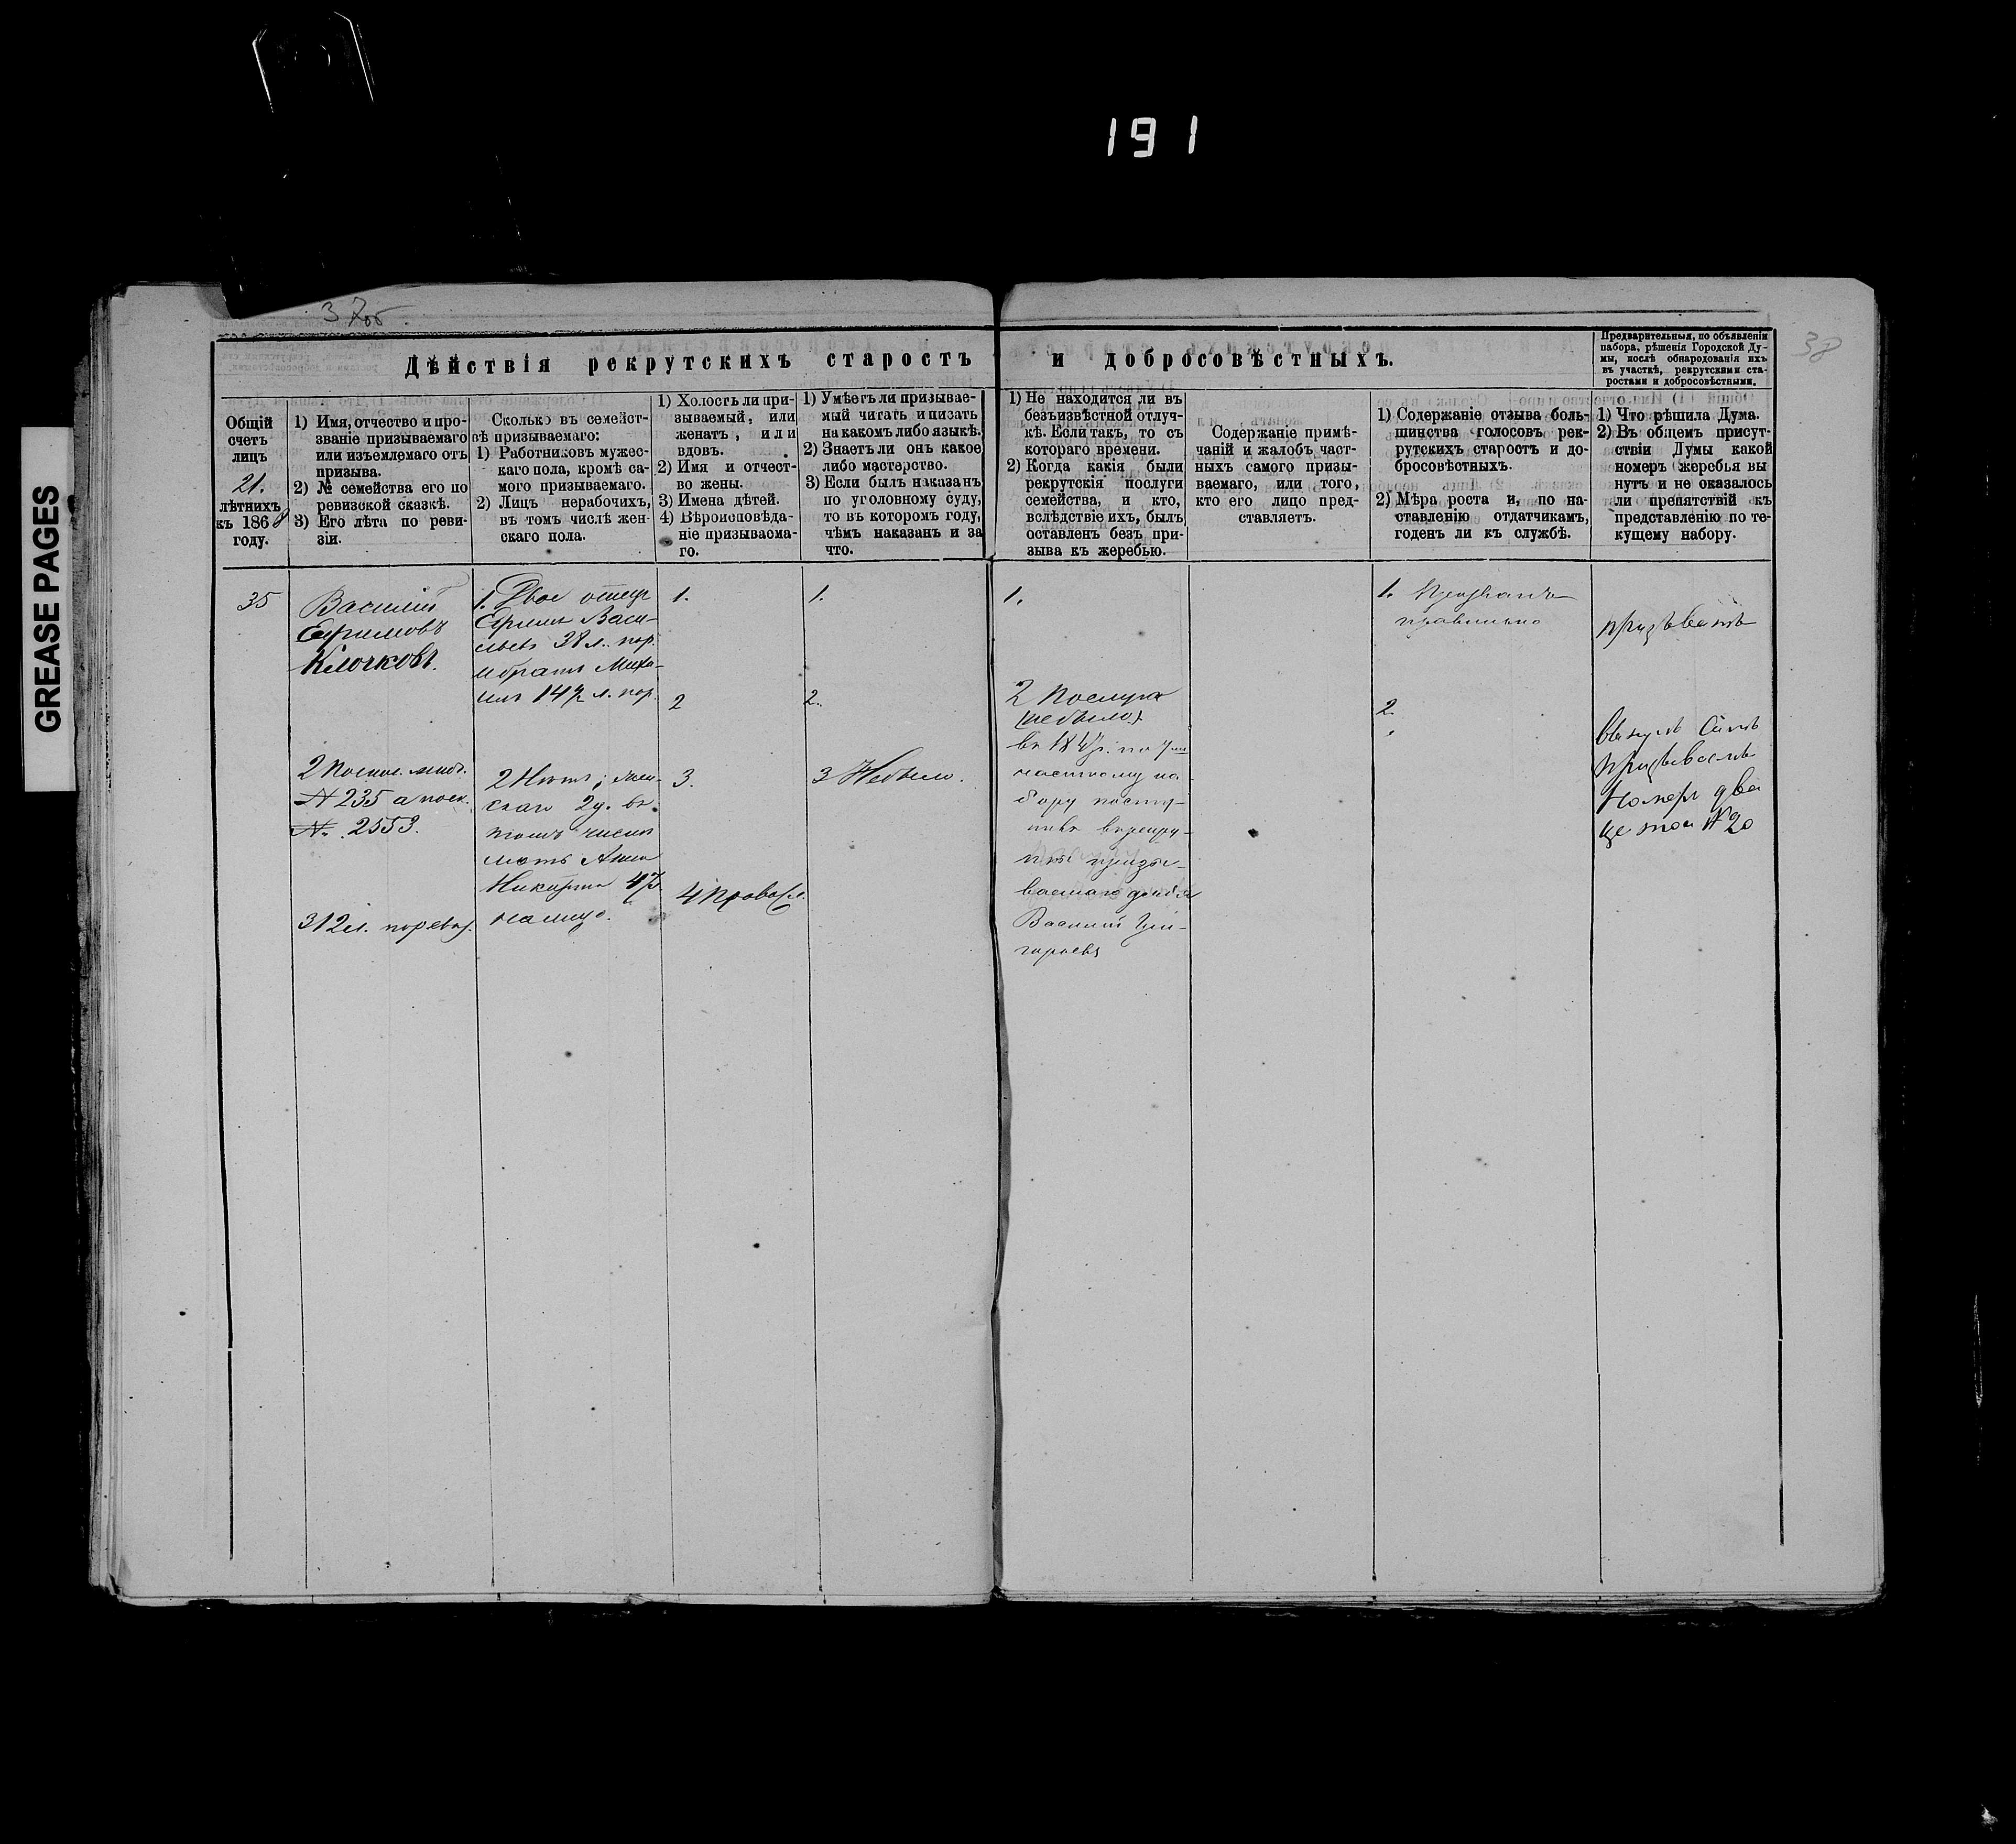 191
GREASE PAGES
37об.
38
Дѣйствія рекрутскихъ старостъ и добросовѣстныхъ.
Предварительныя, по объявленіи
набора, рѣшенія Городской Ду-
мы, послѣ обнародованія ихъ
въ участкѣ, рекрутскими ста-
ростами и добросовѣстными.
Общій
счетъ
лицъ
21.
лѣтнихъ
къ 1868
году.
1) Имя, отчество и про-
званіе призываемаго
или изъемлемаго отъ
призыва.
2) № семейства его по
ревизской сказкѣ.
3) Его лѣта по реви-
зіи.
Сколько въ семейст-
вѣ призываемаго:
1) Работниковъ мужес-
каго пола, кромѣ са-
мого призываемаго.
2) Лицъ нерабочихъ,
въ томъ числѣ жен-
скаго пола.
1) Холостъ ли при-
зываемый, или
женатъ, или
вдовъ.
2) Имя и отчест-
во жены.
3) Имена дѣтей.
4) Вѣроисповѣда-
ніе призываема-
го.
1) Умѣетъ ли призывае-
мый читать и писать
на какомъ либо языкѣ.
2) Знаетъ ли онъ какое
либо мастерство.
3) Если былъ наказанъ
по уголовному суду,
то въ которомъ году,
чѣмъ наказанъ и за
что.
1) Не находится ли въ
безъизвѣстной отлуч-
кѣ. Если такъ, то съ
котораго времени.
2) Когда какія были
рекрутскія послуги
семейства, и кто,
вслѣдствіе ихъ, былъ
оставленъ безъ при-
зыва къ жеребью.
Содержаніе примѣ-
чаній и жалобъ част-
ныхъ самого призы-
ваемаго, или того,
кто его лицо пред-
ставляетъ.
1) Содержаніе отзыва боль-
шинства голосовъ рек-
рутскихъ старостъ и до-
бросовѣстныхъ.
2) Мѣра роста и, по на-
ставленію отдатчикамъ,
годенъ ли къ службѣ.
1) Что рѣшила Дума.
2) Въ общемъ присут-
ствіи Думы какой
номеръ жеребья вы
нутъ и не оказалось
ли препятствій къ
представленію по те-
кущему набору.
35
Василій
Ефимовъ
Клочковъ.
2 Посем.
№ 235 а
№. 2553.
3 12 л. по ревиз.
1. Двое отецъ
Ефимъ Васи-
льевъ 38 л. по р.
и братъ Миха-
илъ 14 1/2 л. по р.
2 Нѣтъ; жен-
скаго 2 у. въ
томъ числѣ
мать Анна
на лицо.
1.
2
3.
4 Правосл.
1.
2.
3 Небыло.
1.
2 Послуга
(небыло).
въ по 7
частному на-
бору посту-
призы-
ваемаго дядя
Василий Гри-
горьевъ
1.
правильно
2.
призывать
вынулъ самъ
призываемый
Номеръ два
цетой № 20